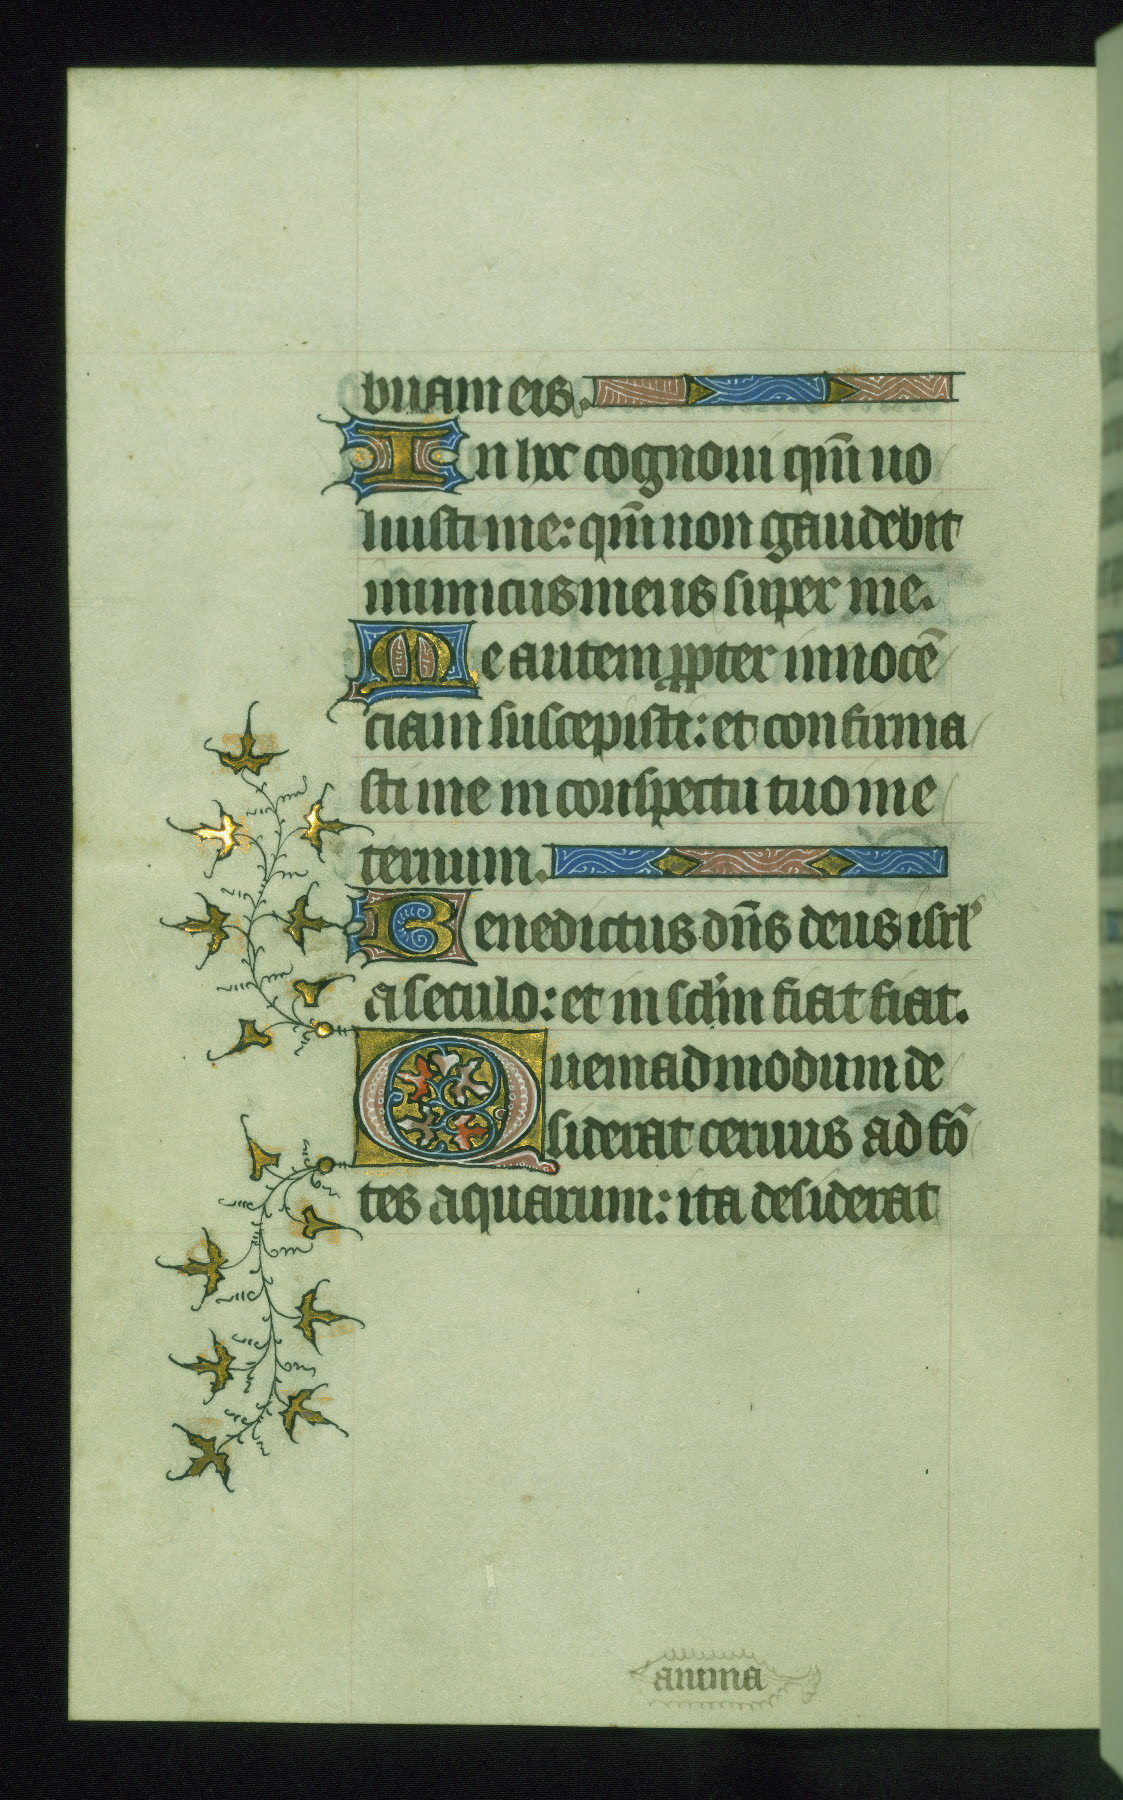 buam eis.
In hoc cognoui qm̄ uo
luisti me: qm̄ non gaudebit
inimicus meus super me.
Me autem ꝓpter innocē
ciam suscepisti: et confirma
sti me in conspectu tuo in e
ternum.
Benedictus dn̄s deus isrl'
a seculo: et in sclm̄ fiat fiat.
Quemadmodum de
siderat ceruus ad fō
tes aquarum: ita desiderat
anima